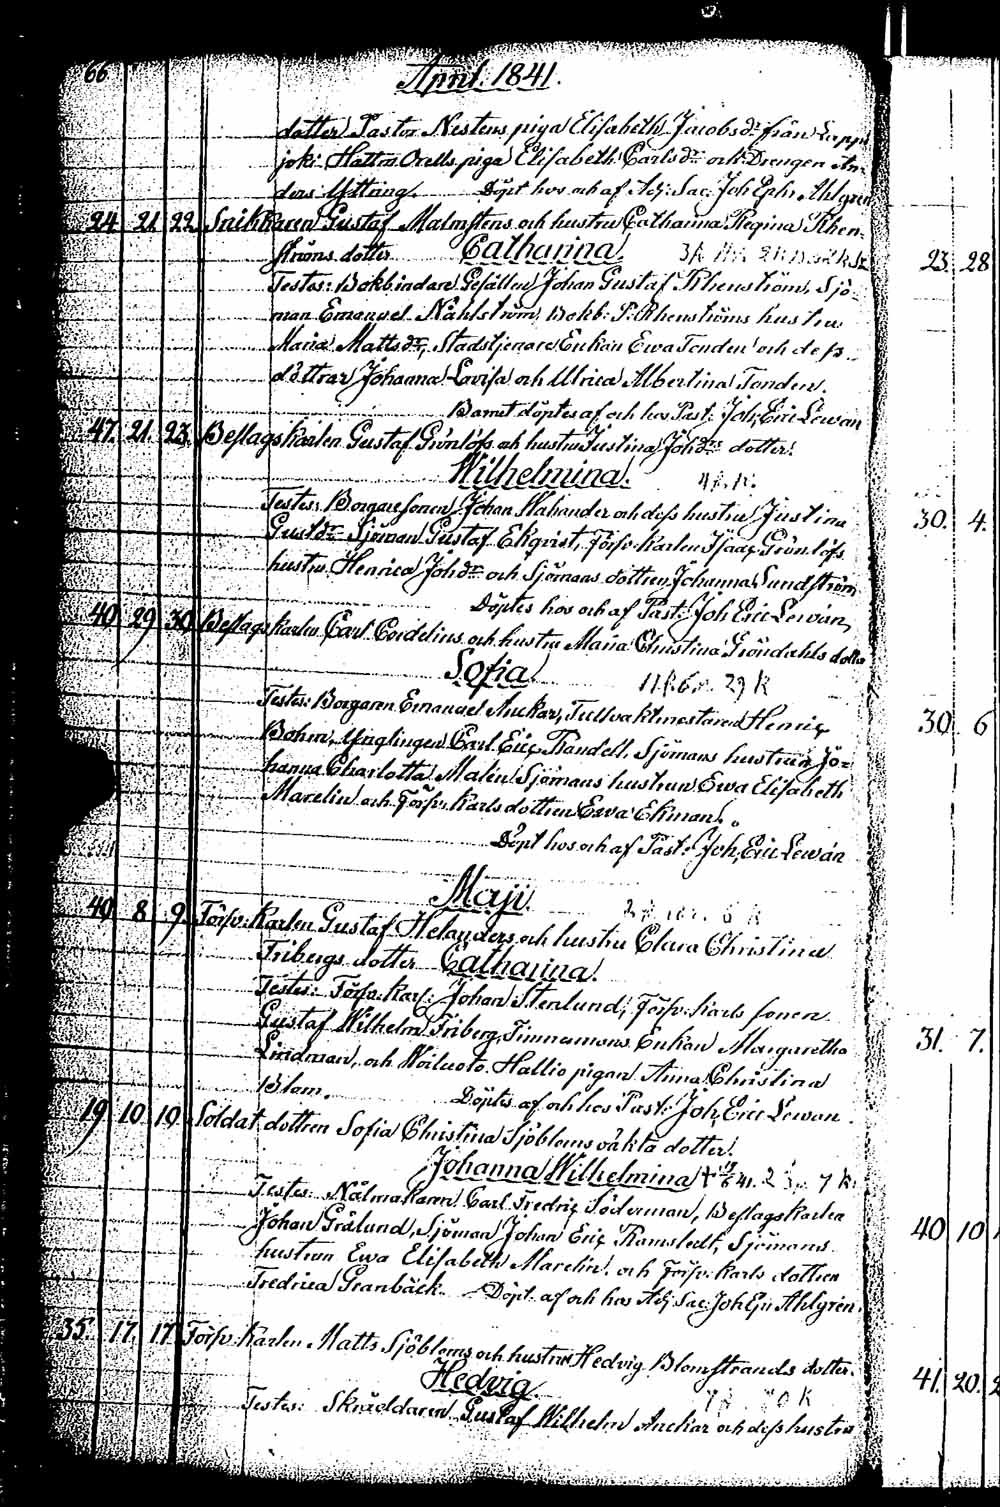 66
April. 1841.
dotter Pastor Nestens piga Elisabeth Jacobs dr från Lapp
joki Hattm. Orells piga Elisabeth Carls dr och Drengen An-
ders Yttring. Döpt hos och af Adj: Sac: Joh Ephr. Ahlgren
24. 21. 22. Snikkaren Gustaf Malmstens och hustru Catharina Regina Rhen-
ströms dotter Catharina.
Testes: Bokbindare Gesällen Johan Gustaf Rhenström, Sjö-
man Emanuel Nahlström, Bokb: P. Rhenströms hustru
Maria Matts dr, Stadstjenare Enkan Ewa Tonden och dess
döttrar Johanna Lovisa och Ulrica Albertina Tonden.
Barnet döptes af och hos Past: Joh. Eric Lewan
47. 21. 23. Beslagskarlen Gustaf Grönlöfs och hustru Justina Joh drs dotter.
Wilhelmina. 4 k.
Testes: Borgaresonen Johan Wahander och dess hustru Justina
Gust dr Sjöman Gustaf Ekqvist, Förfv. karlen Isaac Grönlöfs
hustru Henrica Joh dr och Sjömans dottren Johanna Sundström
Döptes hos och af Past: Joh Eric Lewan,
40. 29. 30. Beslagskarlen Carl Cordelius och hustru Maria Christina Gröndahls dotter
Sofia
Testes: Borgaren Emanuel Anckar, Tullvaktmestaren Henric
Bohm, Ynglingen Carl Eric Thandell, Sjömans hustrun Jo-
hanna Charlotta Malin Sjömans hustrun Ewa Elisabeth
Marelin och Förfv. karls dottren Ewa Ekman.
Döpt hos och af Past: Joh. Eric Lewan
Maji.
40. 8. 9. Förfv: Karlen Gustaf Helanders och hustru Clara Christina
Fribergs dotter Catharina.
Testes: Förfv. Karl: Johan Stenlund, Förfv. Karls sonen
Gustaf Wilhelm Friberg, Timmermans Enkan Margaretha
Lindman, och Woiluoto Hallio pigan Anna Christina
Blom. Döptes af och hos Past: Joh. Eric Lewan.
19. 10. 10. Soldat dottren Sofia Christina Sjöbloms oäkta dotter.
Johanna Wilhelmina
Testes: Nålmakaren Carl Fredric Söderman, Beslagskarlen
Johan Grälund, Sjöman Johan Eric Ramstedt, Sjömans
hustrun Ewa Elisabeth Marelin och Förfv. karls dottren
Fredrica Granbäck. Döpt af och hos Adj. Sac: Joh Ep: Ahlgren.
35. 17. 17. Förfv. Karlen Matts Sjöbloms och hustru Hedvig Blomstrands dotter.
Hedvig.
Testes: Skräddaren Gustaf Wilhelm Anckar och dess hustru
23. 28
30. 4.
30. 6
31. 7.
40 10
41. 20. 2